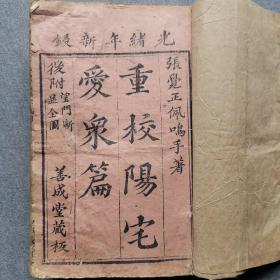 光緒年新鐫
張覺正佩鳴手著
重校陽宅
愛衆篇
後附望門斷
並全圖
善成堂藏板